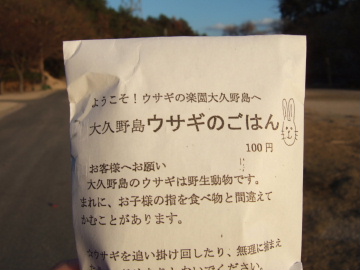 ようこそ!ウサギの楽園大久野島へ
大久野島ウサギのごはん
100円
お客様へお願い
大久野島のウサギは野生動物です。
まれに、お子様の指を食べ物と間違えて
かむことがあります。
ウサギを追い掛け回したり、無理に捕まえ
ないでください。